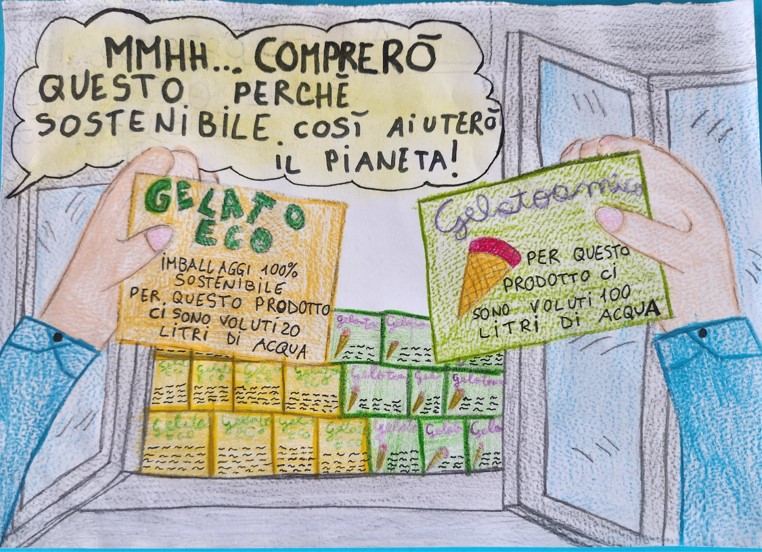 MMHH... COMPRERŌ
QUESTO PERCHĒ
SOSTENIBILE COSĪ AIUTERŌ
IL PIANETA!
GELATO
ECO
IMBALLAGGI 100%
SOSTENIBILE
PER QUESTO PRODOTTO
CI SONO VOLUTI 20
LITRI DI ACQUA
Gelatoamico
PER QUESTO
PRODOTTO CI
SONO VOLUTI 100
LITRI DI ACQUA